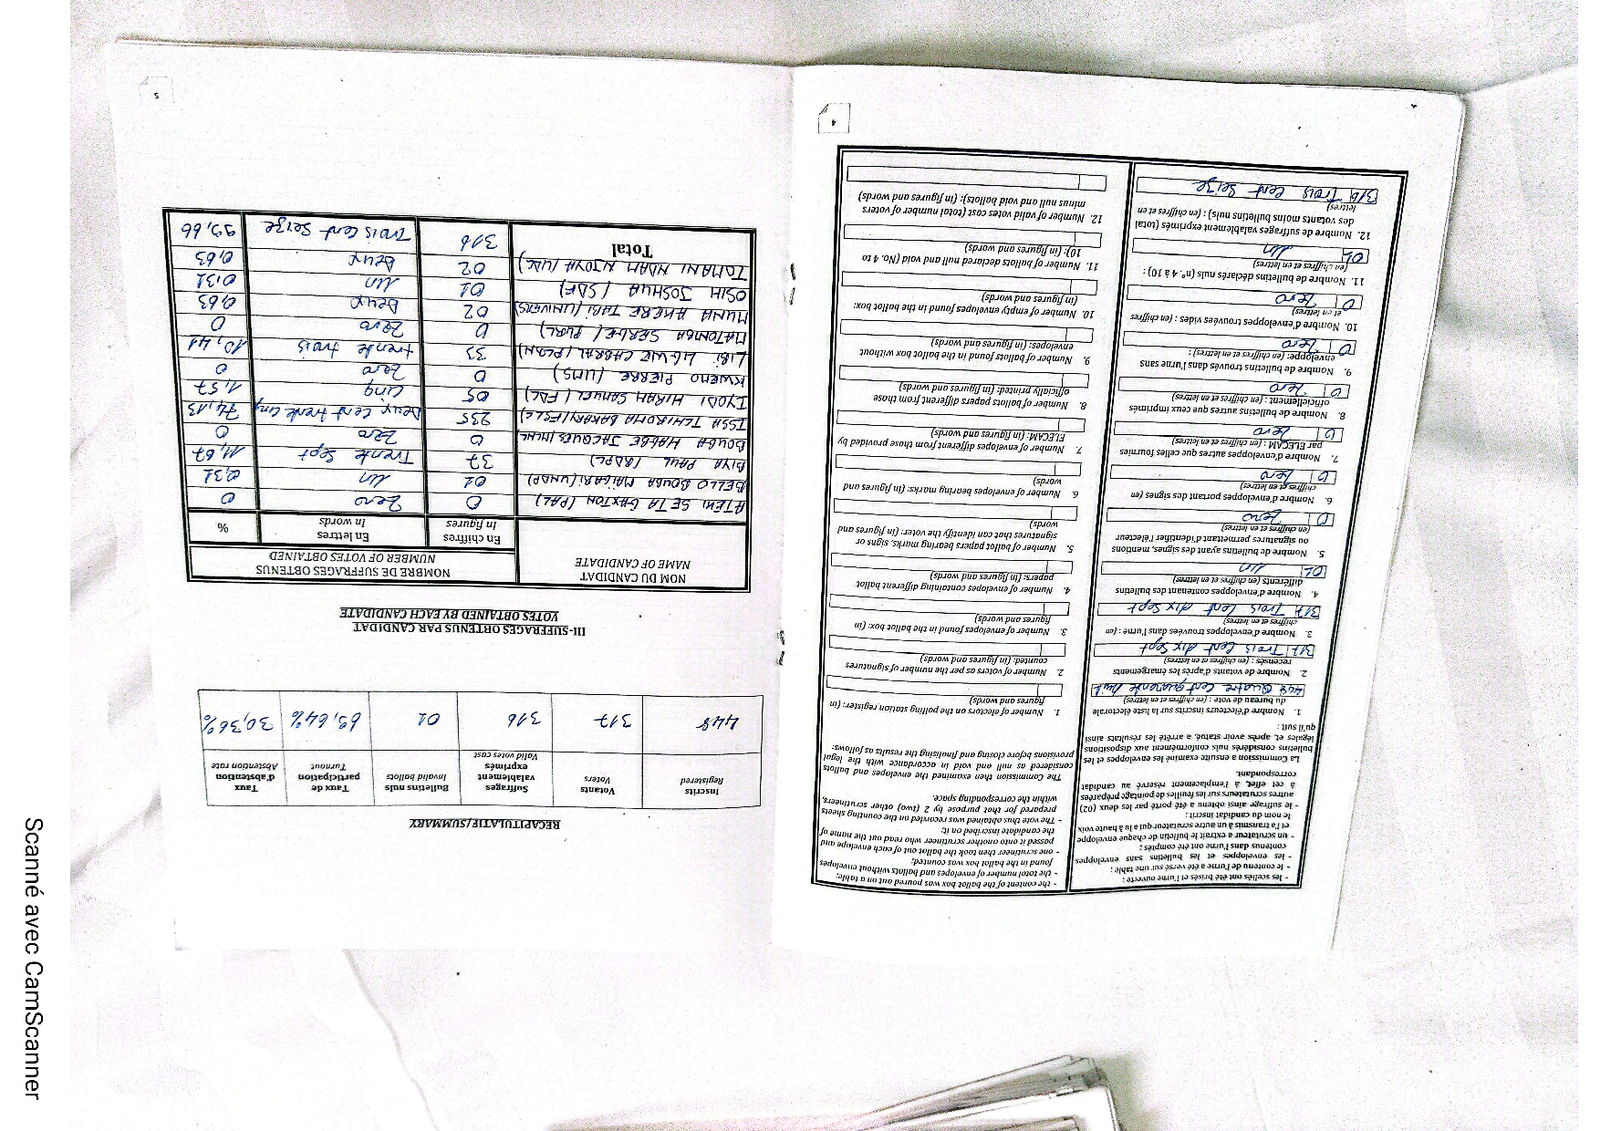 - les scellés ont été brisés et l'urne ouverte ;
- le contenu de l'urne a été versé sur une table ;
- les enveloppes et les bulletins sans enveloppes
contenus dans l'urne ont été comptés ;
- un scrutateur a extrait le bulletin de chaque enveloppe
et l'a transmis à un autre scrutateur qui a lu à haute voix
le nom du candidat inscrit ;
- le suffrage ainsi obtenu a été porté par les deux (02)
autres scrutateurs sur les feuilles de pointage préparées
à cet effet, à l'emplacement réservé au candidat
correspondant.
La Commission a ensuite examiné les enveloppes et les
bulletins considérés nuls conformément aux dispositions
légales et, après avoir statué, a arrêté les résultats ainsi
qu'il suit :
1. Nombre d'électeurs inscrits sur la liste électorale
du bureau de vote : (en chiffres et en lettres)
448 Quatre cent quarante huit
2. Nombre de votants d'après les émargements
recensés : (en chiffres et en lettres)
317 Trois Cent dix Sept
3. Nombre d'enveloppes trouvées dans l'urne : (en
chiffres et en lettres)
317 Trois Cent dix Sept
4. Nombre d'enveloppes contenant des bulletins
différents (en chiffres et en lettres)
01 un
5. Nombre de bulletins ayant des signes, mentions
ou signatures permettant d'identifier l'électeur
(en chiffres et en lettres)
0 Zero
6. Nombre d'enveloppes portant des signes (en
chiffres et en lettres)
0 Zero
7. Nombre d'enveloppes autres que celles fournies
par ELECAM : (en chiffres et en lettres)
0 Zero
8. Nombre de bulletins autres que ceux imprimés
officiellement : (en chiffres et en lettres)
0 Zero
9. Nombre de bulletins trouvés dans l'urne sans
enveloppe: (en chiffres et en lettres) :
0 Zero
10. Nombre d'enveloppes trouvées vides : (en chiffres
et en lettres)
0 Zero
11. Nombre de bulletins déclarés nuls (n°. 4 à 10) :
(en chiffres et en lettres)
01 Un
12. Nombre de suffrages valablement exprimés (total
des votants moins bulletins nuls) : (en chiffres et en
lettres)
316 Trois Cent Seize
- the content of the ballot box was poured out on a table;
- the total number of envelopes and ballots without envelopes
found in the ballot box was counted;
- one scrutineer then took the ballot out of each envelope and
passed it onto another scrutineer who read out the name of
the candidate inscribed on it;
- The vote thus obtained was recorded on the counting sheets
prepared for that purpose by 2 (two) other scrutineers,
within the corresponding space.
The Commission then examined the envelopes and ballots
considered as null and void in accordance with the legal
provisions before closing and finalising the results as follows:
1. Number of electors on the polling station register: (in
figures and words)
2. Number of voters as per the number of signatures
counted: (in figures and words)
3. Number of envelopes found in the ballot box: (in
figures and words)
4. Number of envelopes containing different ballot
papers: (in figures and words)
5. Number of ballot papers bearing marks, signs or
signatures that can identify the voter: (in figures and
words)
6. Number of envelopes bearing marks: (in figures and
words)
7. Number of envelopes different from those provided by
ELECAM: (in figures and words)
8. Number of ballots papers different from those
officially printed: (in figures and words)
9. Number of ballots found in the ballot box without
envelopes: (in figures and words)
10. Number of empty envelopes found in the ballot box:
(in figures and words)
11. Number of ballots declared null and void (No. 4 to
10): (in figures and words)
12. Number of valid votes cost (total number of voters
minus null and void ballots): (in figures and words)
4
RECAPITULATIF/SUMMARY
Inscrits Registered | Votants Voters | Suffrages valablement exprimés Valid votes cast | Bulletins nuls Invalid ballots | Taux de participation Turnout | Taux d'abstention Abstention rate
448 | 317 | 316 | 01 | 69,64% | 30,36%
III- SUFFRAGES OBTENUS PAR CANDIDAT
VOTES OBTAINED BY EACH CANDIDATE
NOM DU CANDIDAT NAME OF CANDIDATE | NOMBRE DE SUFFRAGES OBTENUS NUMBER OF VOTES OBTAINED
En chiffres In figures | En lettres In words | %
ATEKI SETA CAXTON (PAL) | 0 | Zero | 0
BELLO BOUBA MAIGARI (UNDP) | 01 | un | 0,31
BIYA PAUL (RDPC) | 37 | Trente Sept | 11,67
BOUGA HAGBE JACQUES | 0 | Zero | 0
ISSA TCHIROMA BAKARY (FSNC | 235 | Deux Cent trente Cinq | 74,13
IYODI HIRAM SAMUEL (FDC) | 05 | Cinq | 1,57
KWEMO PIERRE (UMS) | 0 | Zero | 0
LIBII LI NGUE CABRAL (PCRN) | 33 | trente trois | 10,41
MATOMBA SERGE (PURL) | 0 | Zero | 0
MUNA AKERE TABI (UNIVERS) | 02 | Deux | 0,63
OSIH JOSHUA (SDF) | 01 | un | 0,31
TOMAINI NDAM NJOYA (UDC) | 02 | Deux | 0,63
Total | 316 | Trois Cent Seize | 99,66
5
Scanné avec CamScanner